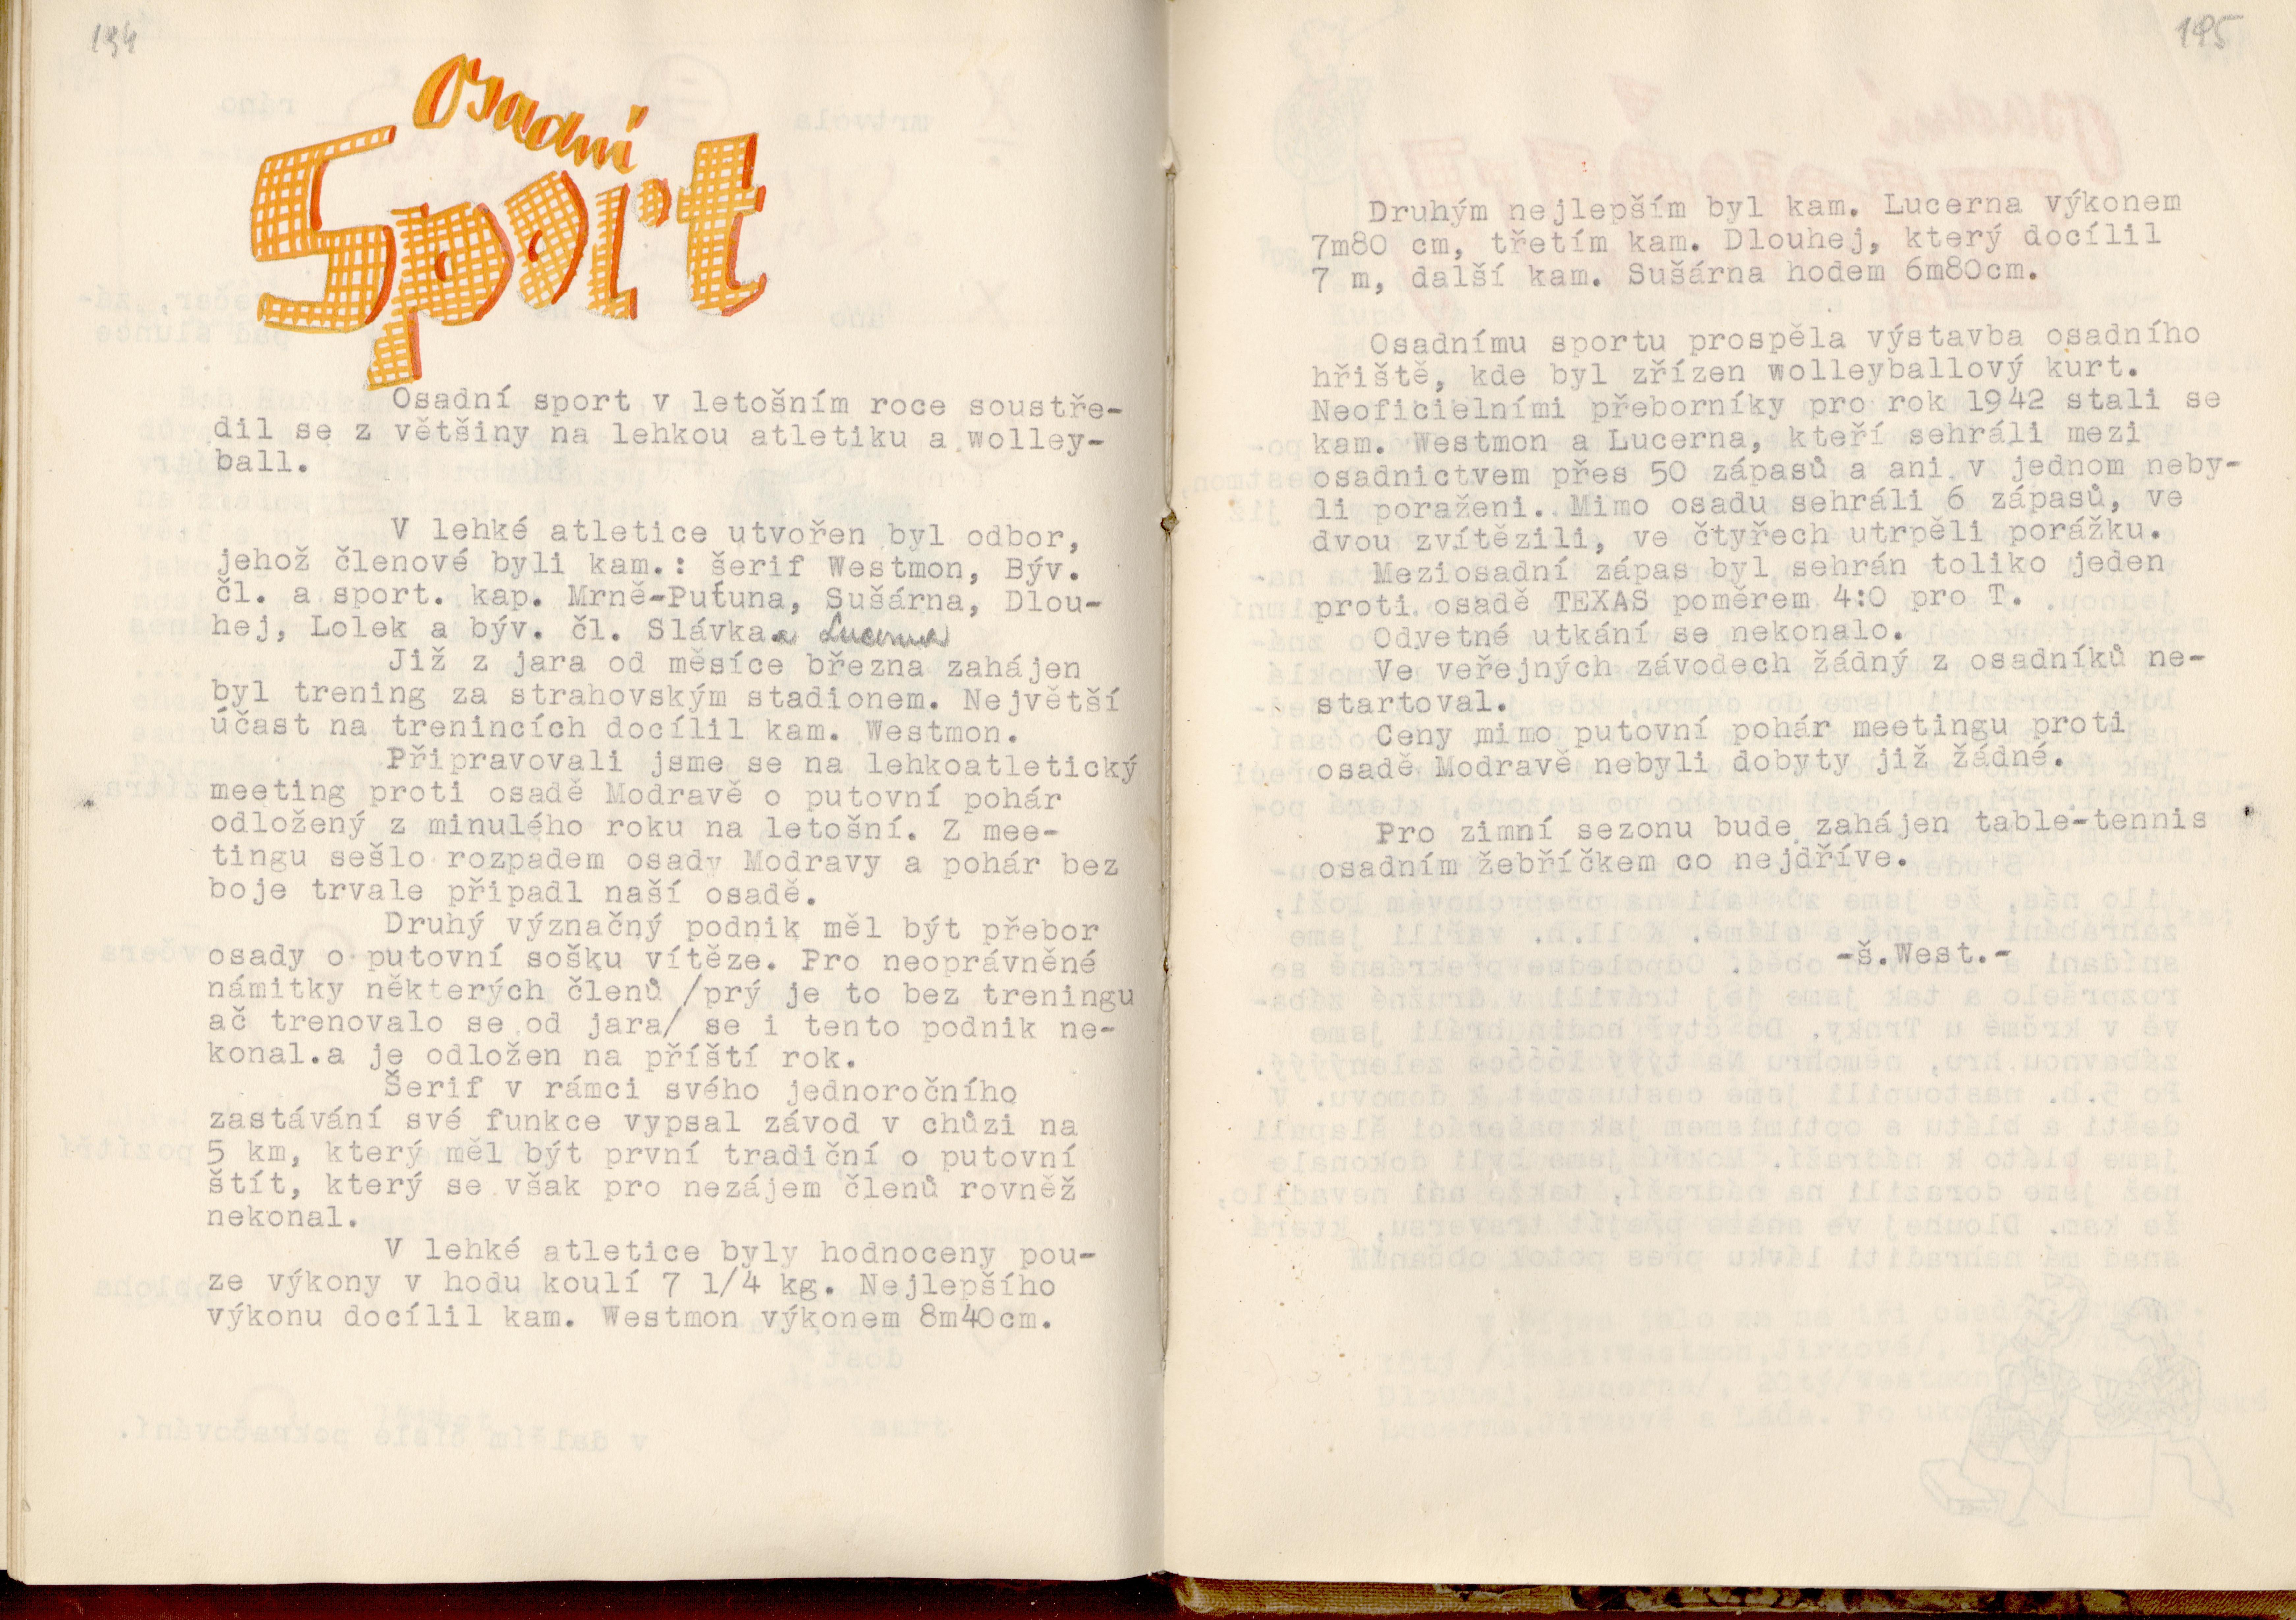 194
Osadní
Sport
Osadní sport v letošním roce soustře-
dil se z většiny na lehkou atletiku a wolley-
ball.
V lehké atletice utvořen byl odbor,
jehož členové byli kam.: šerif Westmon, Býv.
čl. a sport. kap. Mrně-Puťuna, Sušárna, Dlou-
hej, Lolek a býv. čl. Slávka. a Lucerna
Již z jara od měsíce března zahájen
byl trening za strahovským stadionem. Největší
účast na trenincích docílil kam. Westmon.
Připravovali jsme se na lehkoatletický
meeting proti osadě Modravě o putovní pohár
odložený z minulého roku na letošní. Z mee-
tingu sešlo rozpadem osady Modravy a pohár bez
boje trvale připadl naší osadě.
Druhý význačný podnik měl být přebor
osady o putovní sošku vítěze. Pro neoprávněné
námitky některých členů /prý je to bez treningu
ač trenovalo se od jara/ se i tento podnik ne-
konal.a je odložen na příští rok.
Šerif v rámci svého jednoročního
zastávání své funkce vypsal závod v chůzi na
5 km, který měl být první tradiční o putovní
štít, který se však pro nezájem členů rovněž
nekonal.
V lehké atletice byly hodnoceny pou-
ze výkony v hodu koulí 7 1/4 kg. Nejlepšího
výkonu docílil kam. Westmon výkonem 8m40cm.
195
Druhým nejlepším byl kam. Lucerna výkonem
7m80 cm, třetím kam. Dlouhej, který docílil
7 m, další kam. Sušárna hodem 6m80cm.
Osadnímu sportu prospěla výstavba osadního
hřiště, kde byl zřízen wolleyballový kurt.
Neoficielními přeborníky pro rok 1942 stali se
kam. Westmon a Lucerna, kteří sehráli mezi
osadnictvem přes 50 zápasů a ani v jednom neby-
li poraženi. Mimo osadu sehráli 6 zápasů, ve
dvou zvítězili, ve čtyřech utrpěli porážku.
Meziosadní zápas byl sehrán toliko jeden
proti osadě TEXAS poměrem 4:0 pro T.
Odvetné utkání se nekonalo.
Ve veřejných závodech žádný z osadníků ne-
startoval.
Ceny mimo putovní pohár meetingu proti
osadě Modravě nebyli dobyty již žádné.
Pro zimní sezonu bude zahájen table-tennis
osadním žebříčkem co nejdříve.
-š.West.-